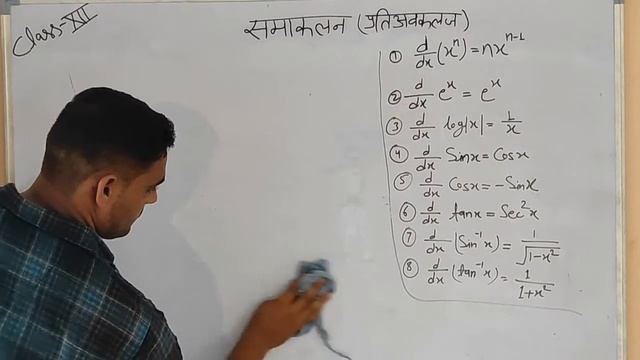 Class-XII
समाकलन (प्रतिअवकलज)
① d/dx (xⁿ) = nxⁿ⁻¹
② d/dx eˣ = eˣ
③ d/dx log|x| = 1/x
④ d/dx Sinx = Cosx
⑤ d/dx Cosx = -Sinx
⑥ d/dx tanx = Sec²x
⑦ d/dx (Sin⁻¹x) = 1/√(1-x²)
⑧ d/dx (tan⁻¹x) = 1/(1+x²)